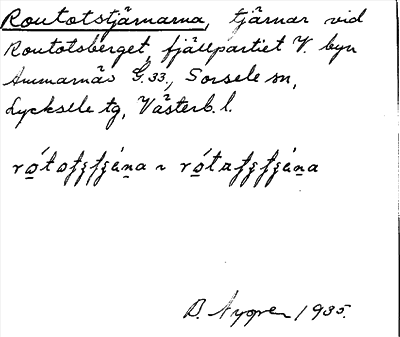 Routotstjärnarna, tjärnar vid
Routotsberget, fjällpartiet V. byn
Ammarnäs G. 33., Sorsele sn,
Lycksele tg, Västerb. l.
B. Nygren 1935.